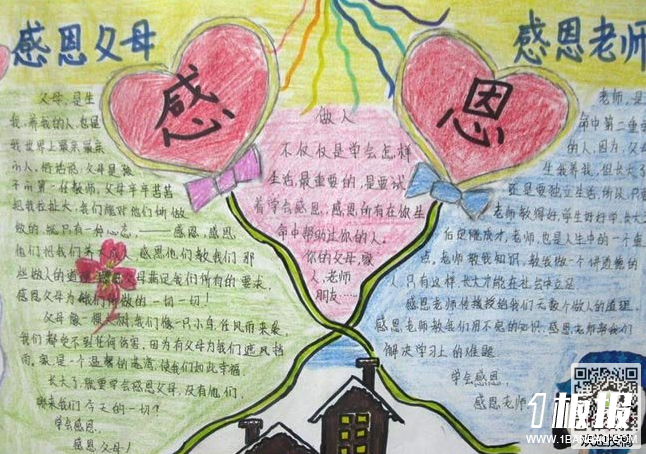 感恩父母
感
父母,是生
我,养我的人,也是
我世界上最亲最亲
的人,俗话说:父母是孩
子的第一任教师,父母辛辛苦苦
把我在扯大,我们能对他们所做
做的,就只有一种心态,——感恩,感恩
他们把我们养 感恩他们教我们那
些做人的道理 母满足我们所有的要求,
感恩父母为他们所做的一切一切!
父母像一棵大树,我们像一只小鸟,任风雨来袭,
我们都受不到任何伤害,因为有父母为我们遮风挡
雨。家,是一个温馨的港湾,使我们如此幸福
长大了,就要学会感恩父母,没有他们,
哪来我们今天的一切?
学会感恩,
感恩父母!
做人
不仅仅是学会怎样
生活,最重要的,是要试
着学会感恩,感恩所有在你生
命中帮助过你的人。
你的父母,家
人,老师
朋友……
感恩老师
恩
老师,是
命中第二重要
的人,因为,父母
生我养我,但长大了
还是要独立生活,所以,只要
老师教得好,学生好好学,长大之
后定继成才,老师,也是人生中的一个重
点,老师教我知识,教我做一个讲道德的
人,只有这样,长大才能在社会中立足
感恩老师传授授给我们无数个做人的道理,
感恩老师教我们用不完的知识,感恩老师帮我们
解决学习上的难题.
学会感恩,
感恩老师
1板报
WWW.1BANBAO.COM